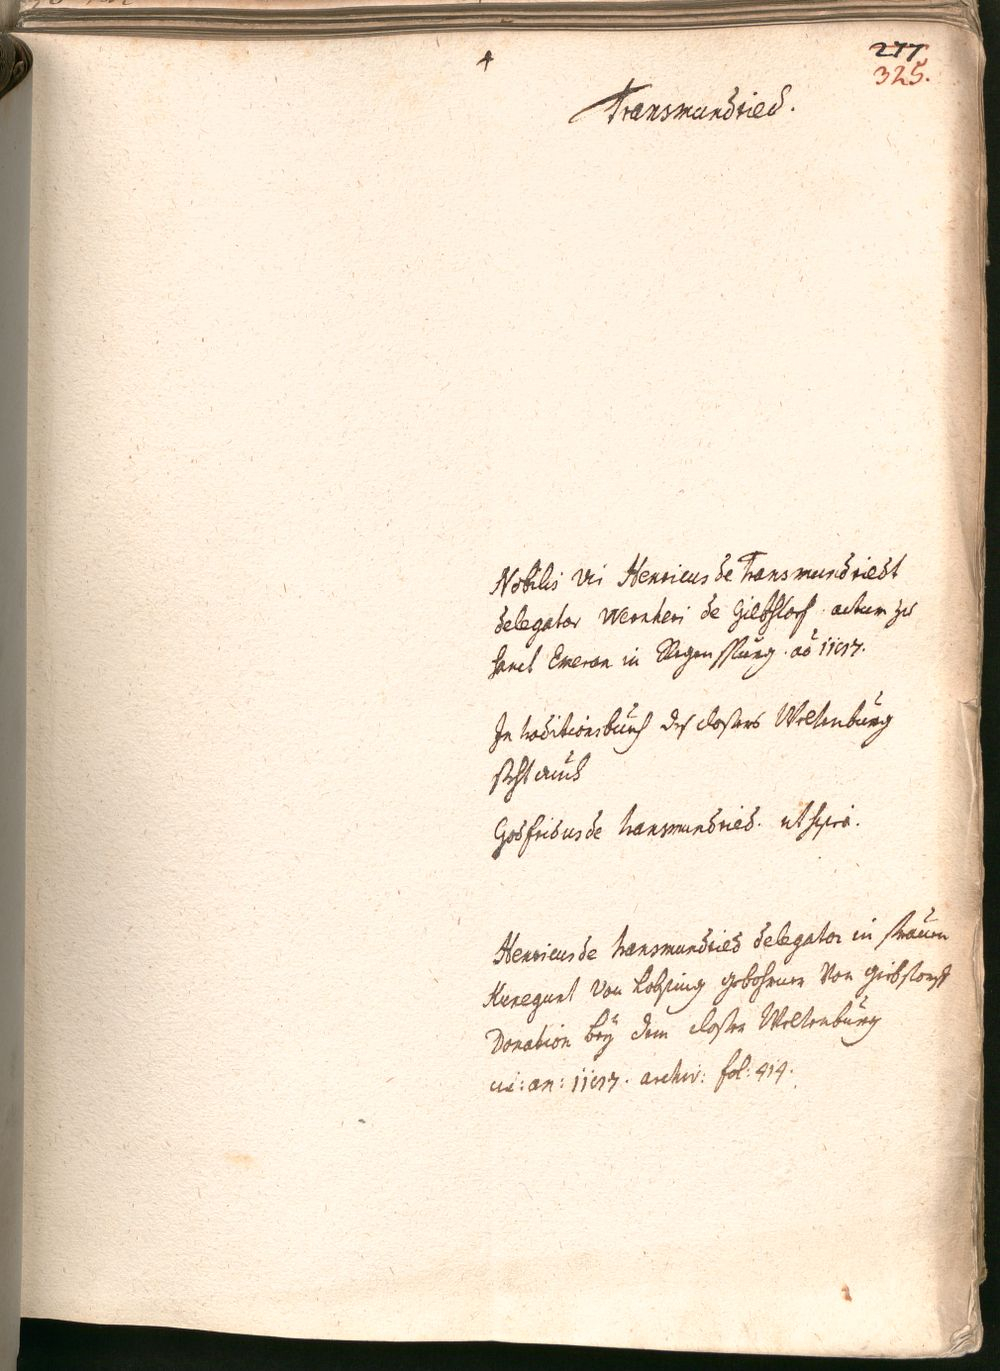 277
325.
Transmundried.
Nobilis vir Henricus de Transmundriedt
delegator Wernheri de Giebstorf. actum zu
sanct Emeran in Regenspurg. ao
In traditionsbuch des closters Weltenburg
steht auch
Godfridus de transmundried. ut supra.
Henricus de transmundried delegator in frauen
Kunegunt von gebohrner von Giebstorf
Donation bey dem closter Weltenburg
an: archiv: fol: 414.